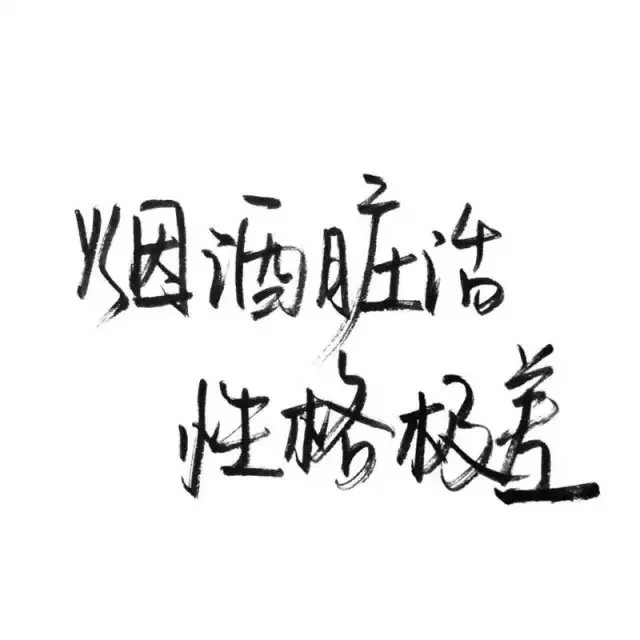 烟酒脏话
性格极差